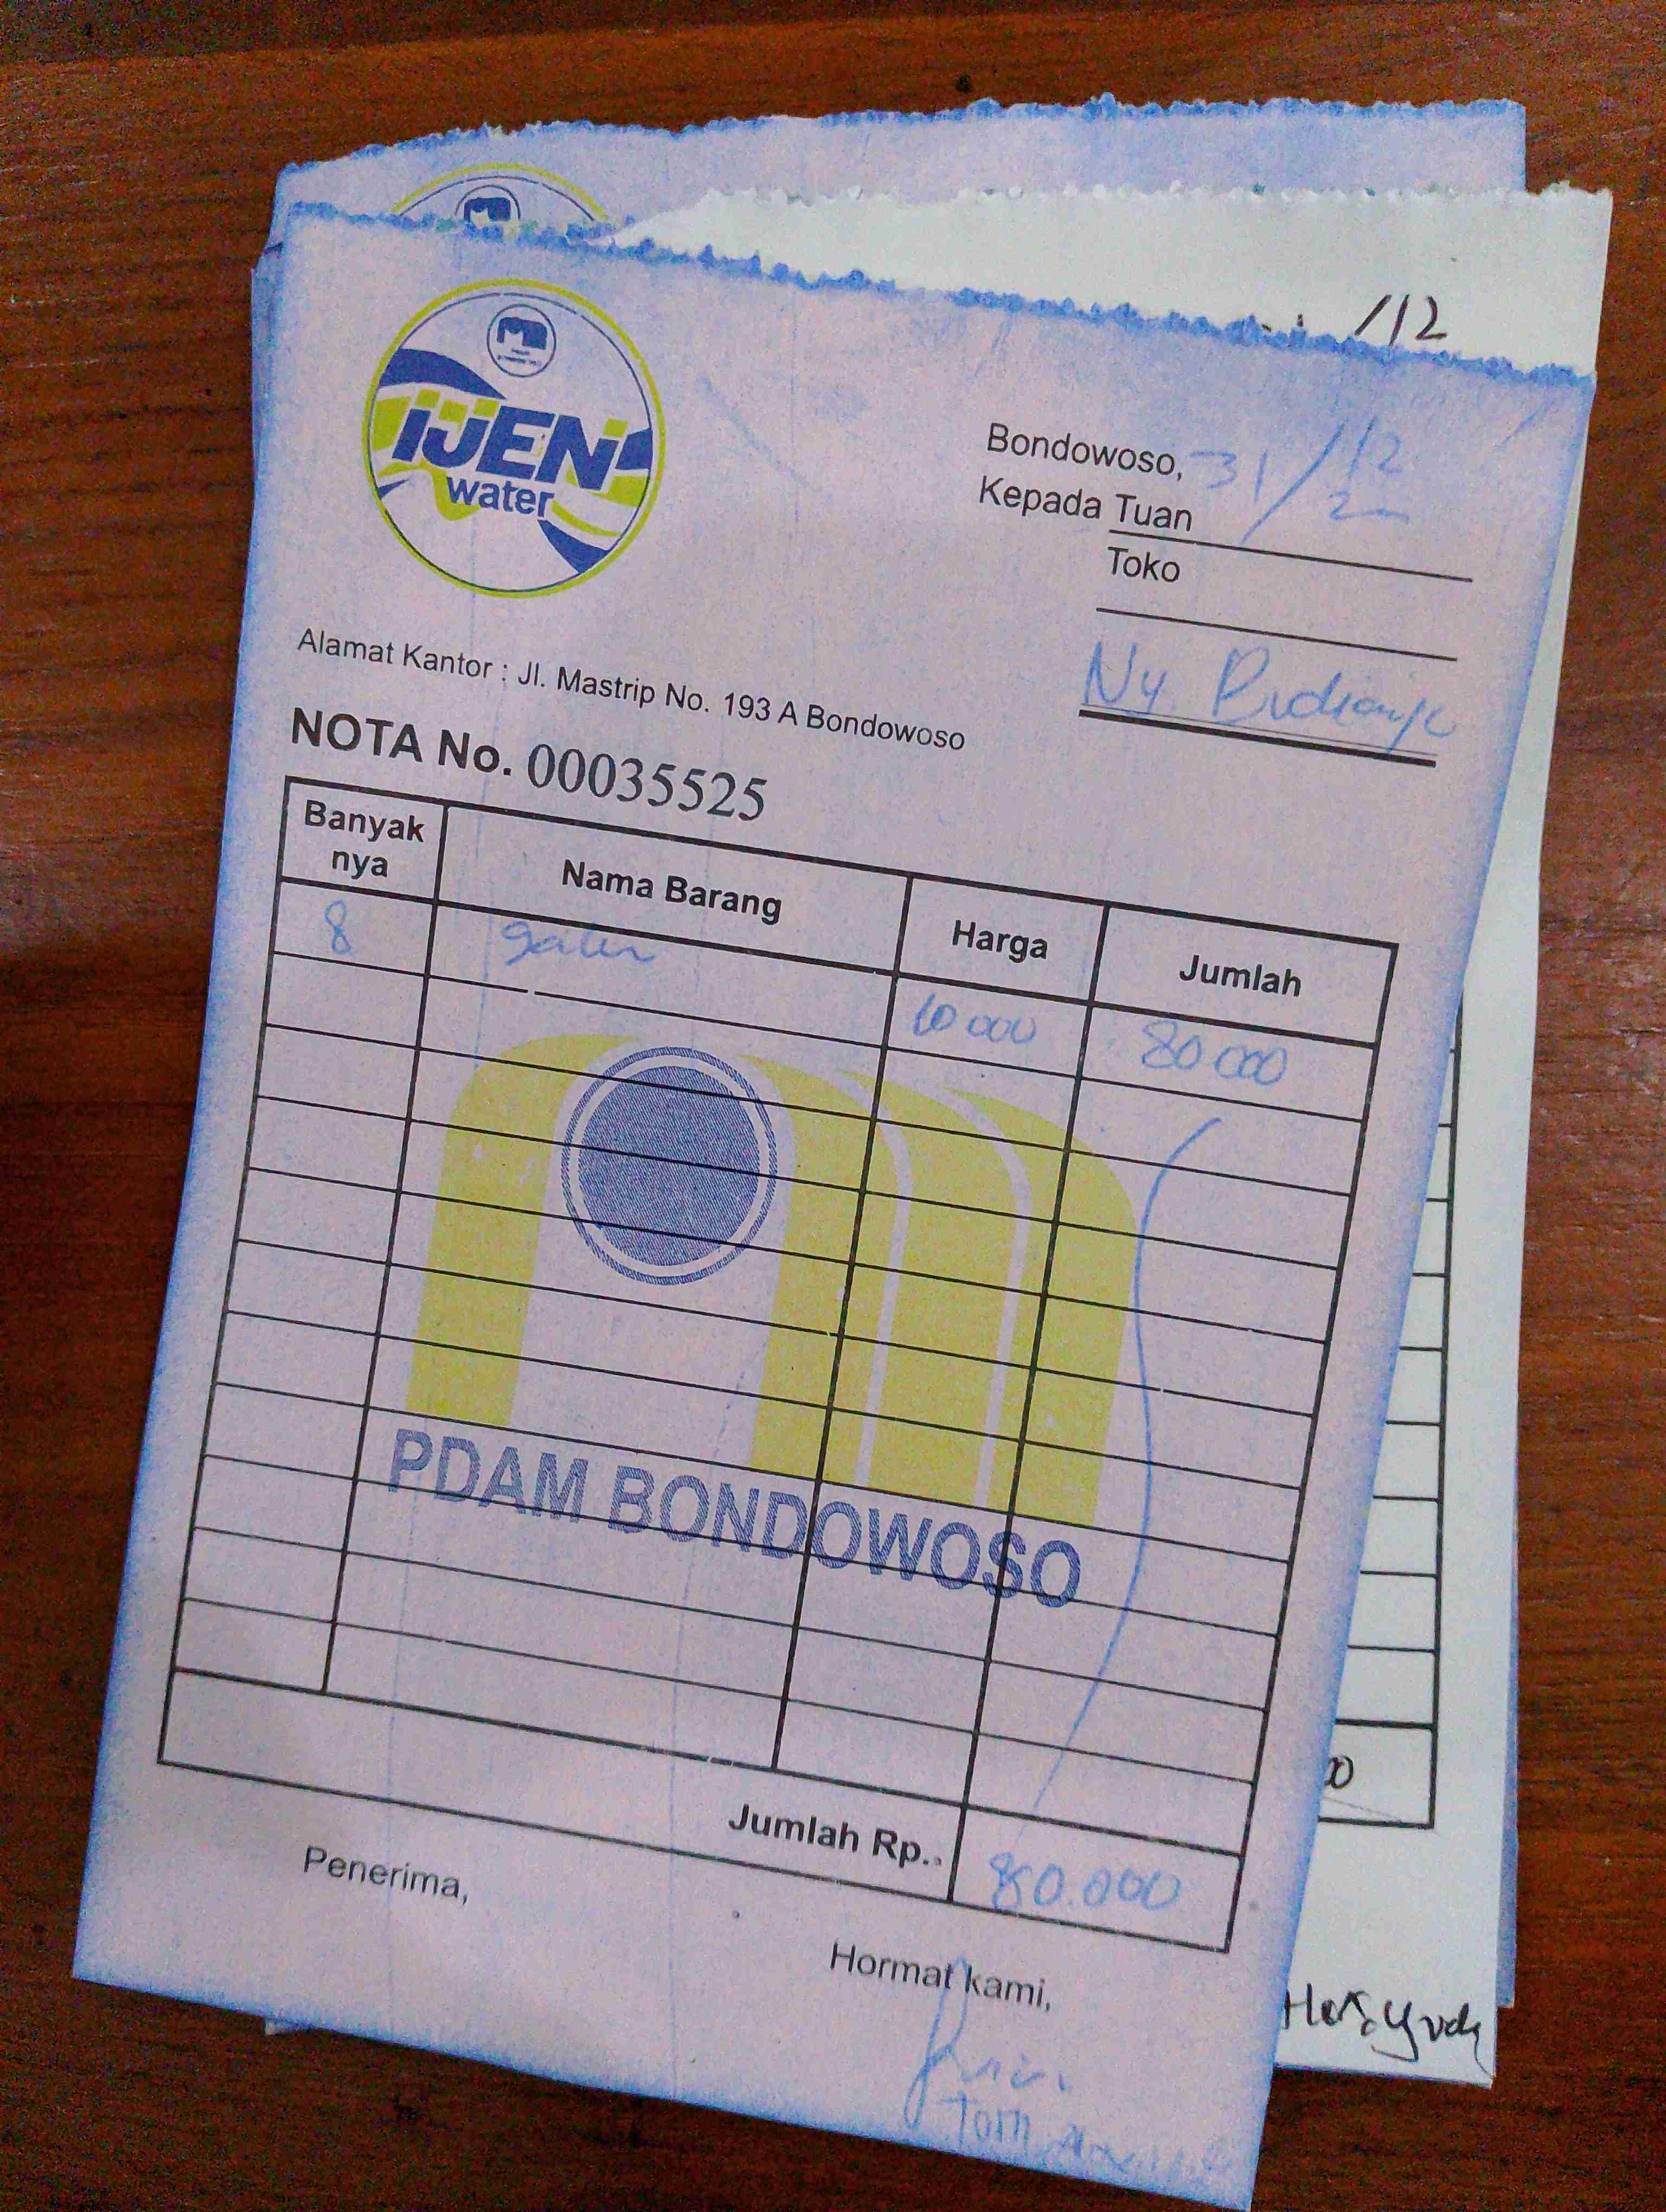 /12
IJEN
water
Bondowoso, 31/12
Kepada Tuan
Toko
Ny.
Alamat Kantor : Jl. Mastrip No. 193 A Bondowoso
NOTA No. 00035525
Banyak
nya
Nama Barang
Harga
Jumlah
8
galon
10 000
80 000
PDAM BONDOWOSO
Jumlah Rp..
80.000
Penerima,
Hormat kami,